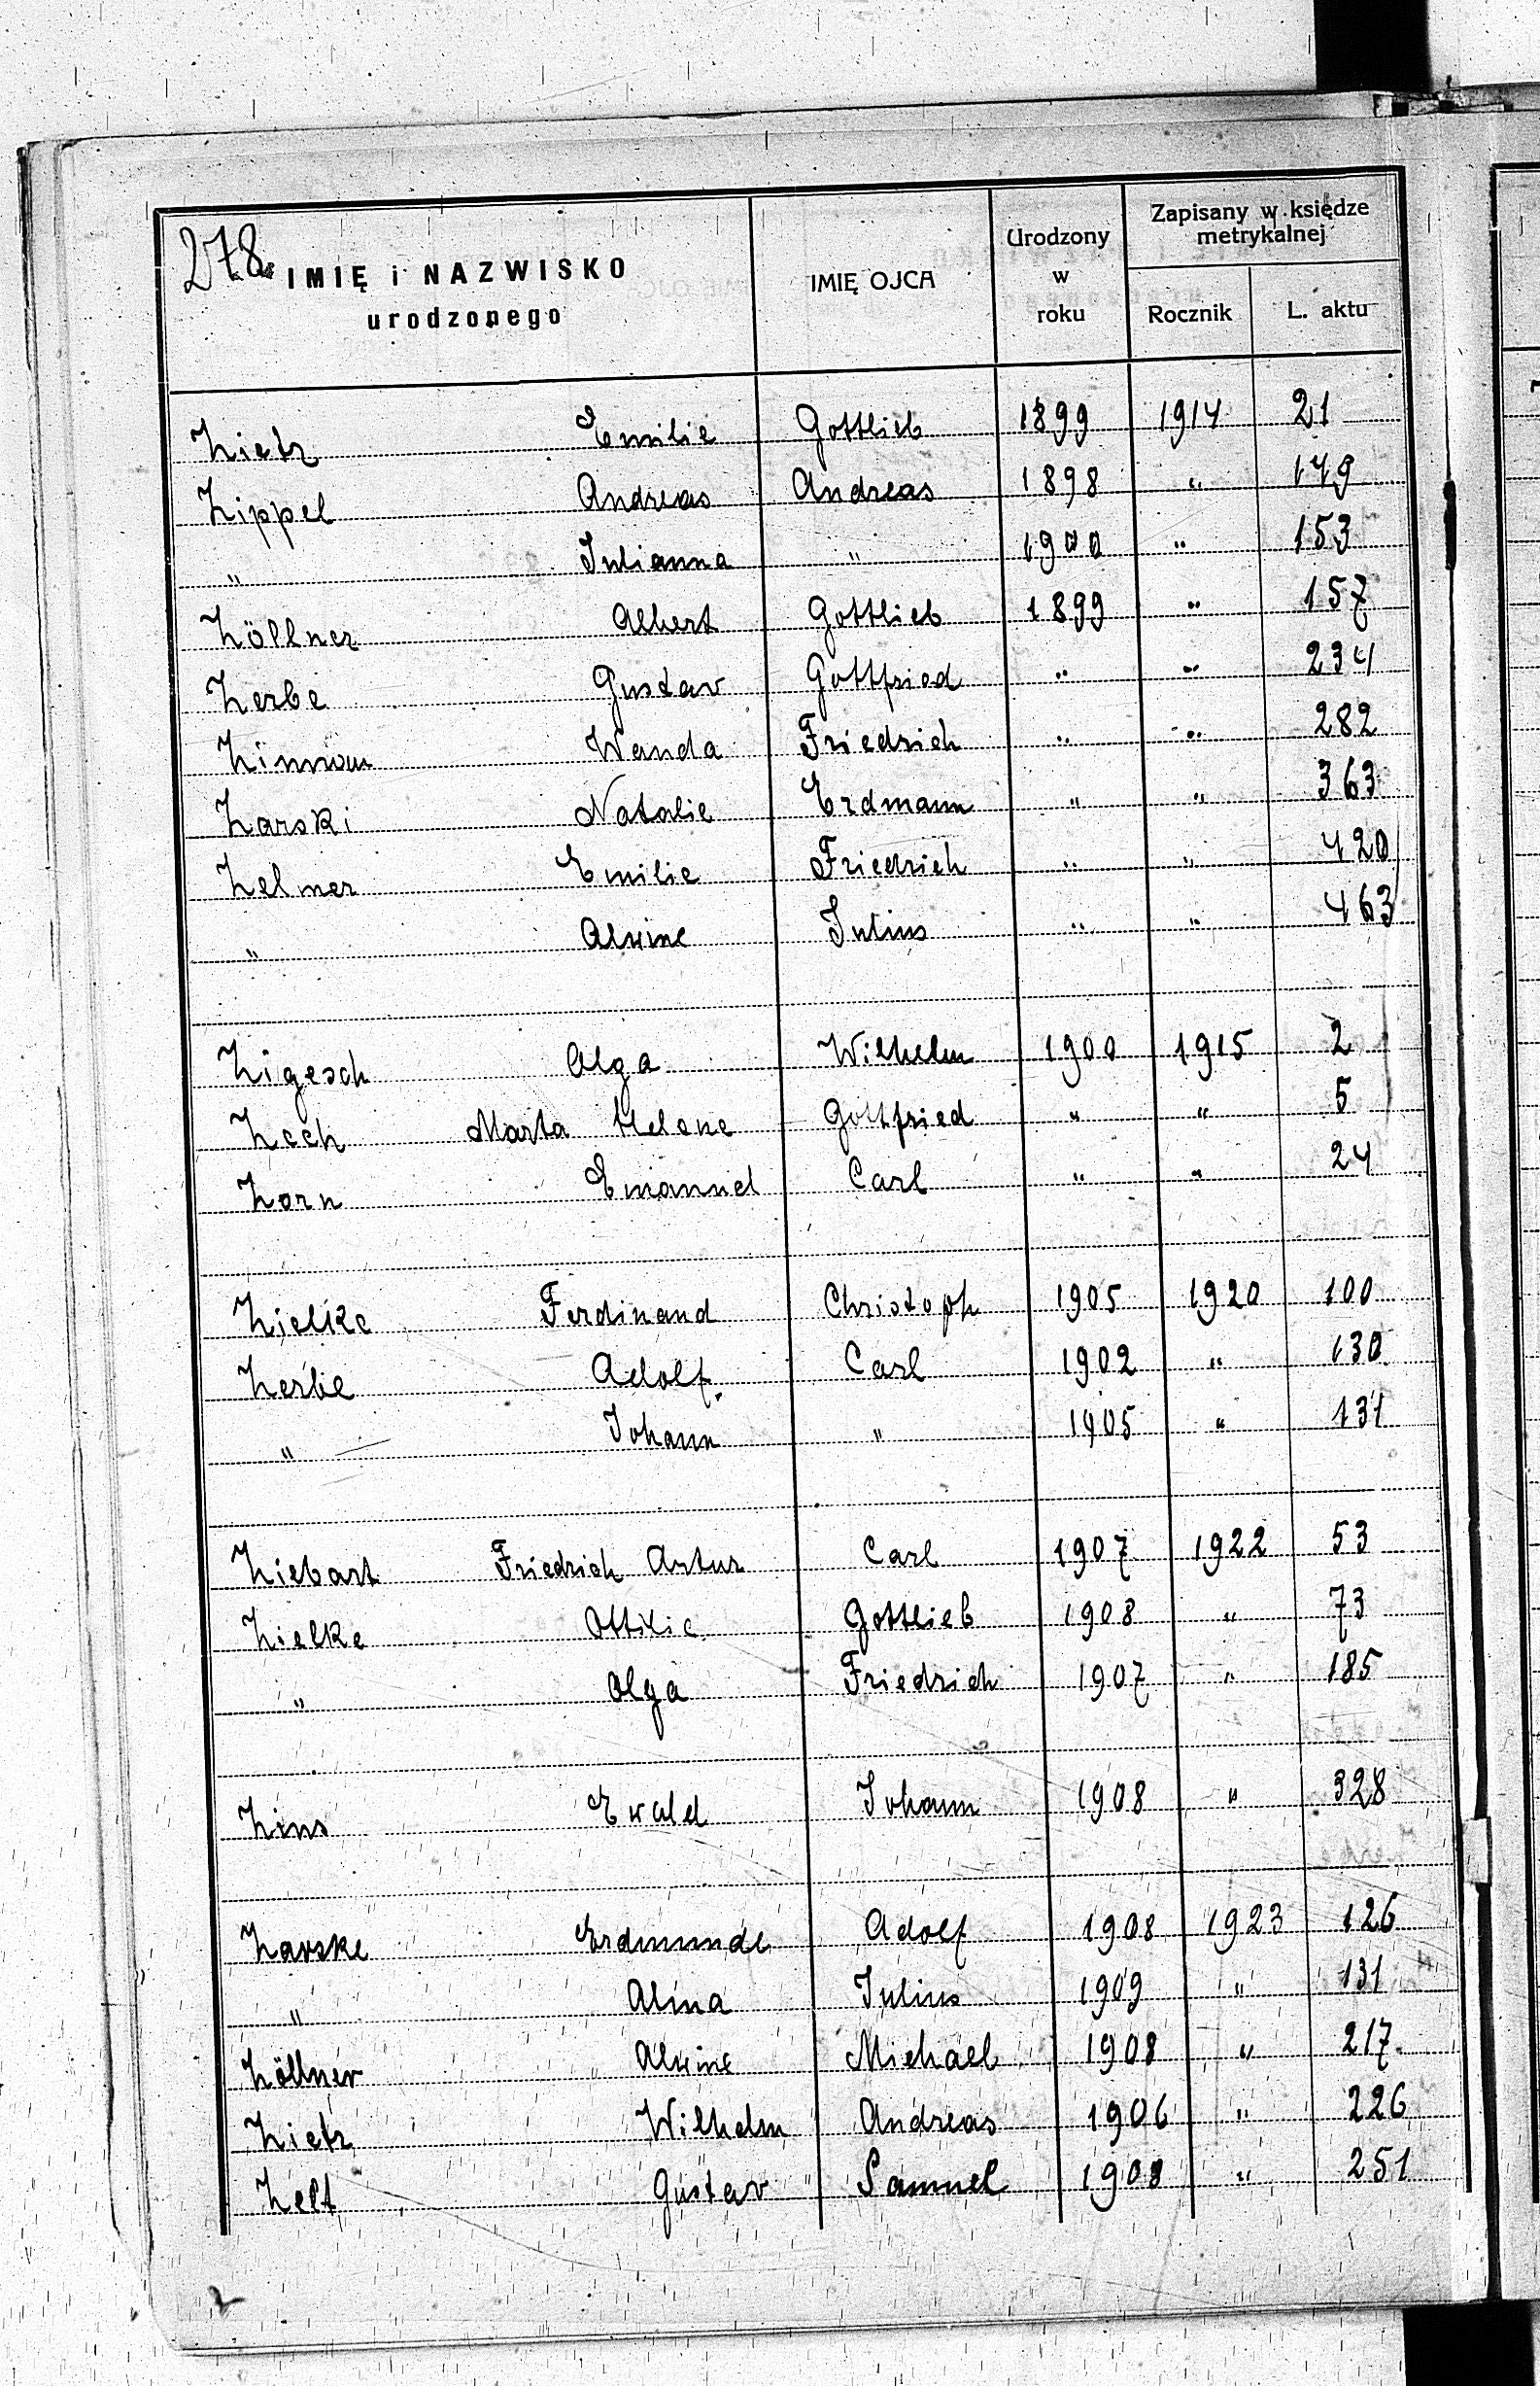 278.
IMIĘ i NAZWISKO
urodzonego
IMIĘ OJCA
Urodzony
w
roku
Zapisany w księdze
metrykalnej
Rocznik
L. aktu
Zietz Emilie Gottlieb 1899 1914 21
Zippel Andreas Andreas 1898 " 149
" Julianna " 1900 " 153
Zöllner Albert Gottlieb 1899 " 157
Zerbe Gustav Gottfried " " 234
Wanda Friedrich " " 282
Zarski Natalie Erdmann " " 363
Zelmer Emilie Friedrich " " 420
" Alwine Julius " " 463
Zigesch Olga Wilhelm 1900 1915 2
Zech Marta Helene Gottfried " " 5
Zorn Emanuel Carl " " 24
Zielke Ferdinand Christoph 1905 1920 100
Zerbe Adolf Carl 1902 " 130
" Johann " 1905 " 131
Ziebart Friedrich Artur Carl 1907 1922 53
Zielke Ottilie Gottlieb 1908 " 73
" Olga Friedrich 1907 " 185
Zins Ewald Johann 1908 " 328
Zarske Erdmunde Adolf 1908 1923 126
" Alma Julius 1909 " 131
Zöllner Alwine Michael 1908 " 217
Zietz Wilhelm Andreas 1906 " 226
Zelt Gustav Samuel 1908 " 251